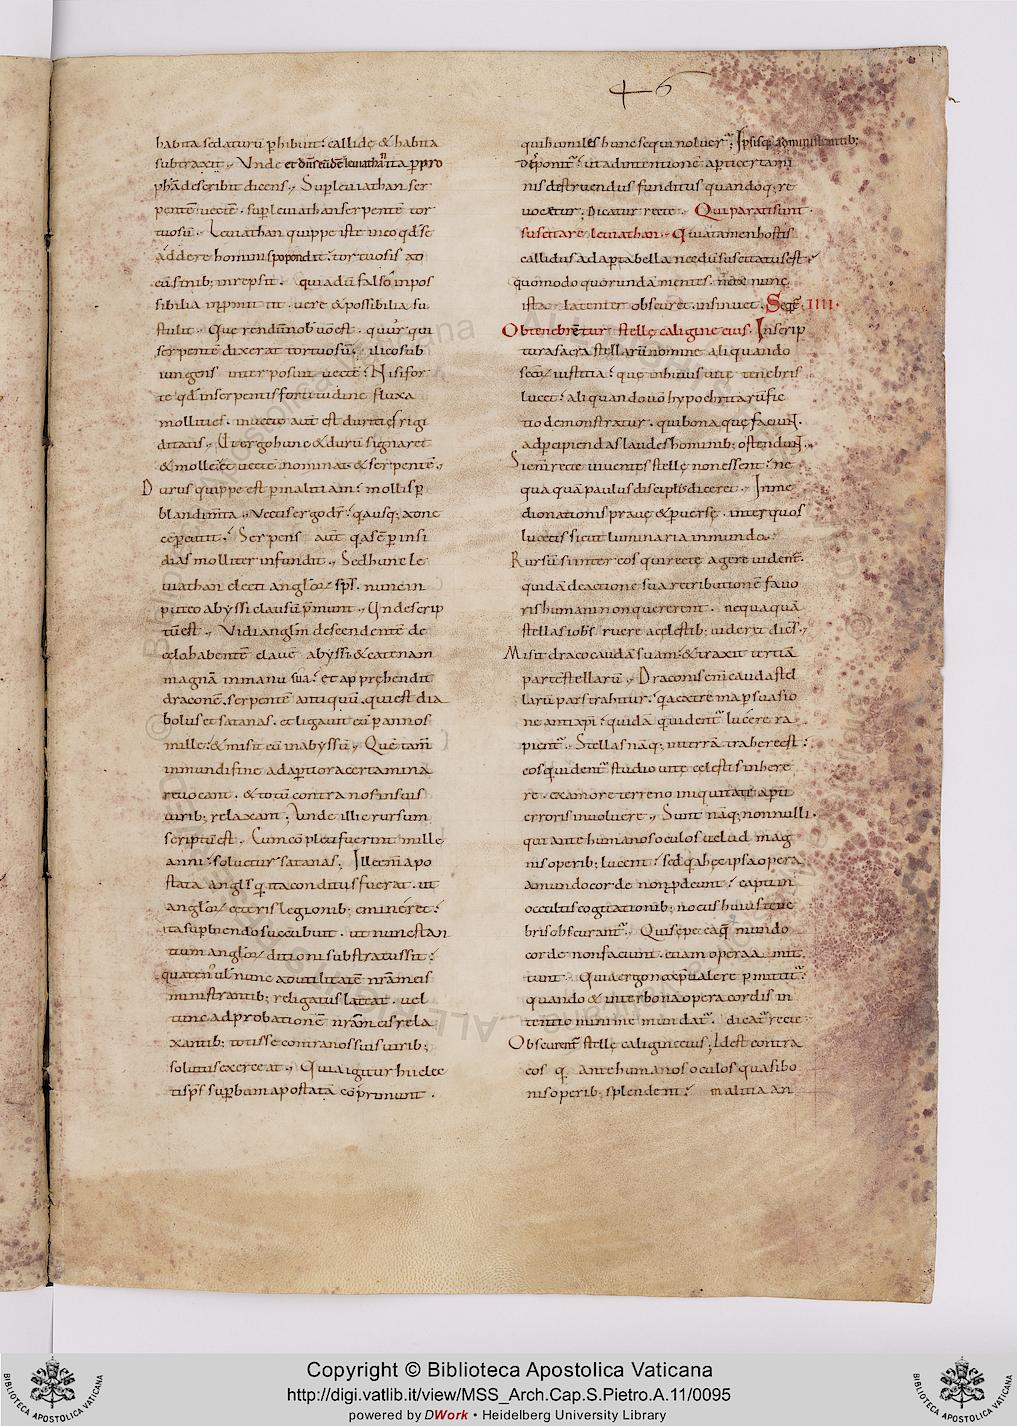 46
habita se daturū ꝓhibuit: callidę & habita
subtraxit. Unde et dn̄s eūdē leuiathan ita ꝑ pro
ph&ā describit dicens. Sup leuiathan ser
pentē uectē. sup leuiathan serpentē tor
tuosū. Leuiathan quippe iste in eo qd̄ se
addere homini spopondit: tortuosis ad
eū sinib; inrepsit. quia dū falso inpos
sibilia ꝓmittit. uere & possibilia su
stulit. Querendū nob̄ uo est. quur qui
serpentē dixerat tortuosū. ilico sub
iungens interposuit uectē: Nisi for
te qd̄ in serpentis fortitudine fluxa
mollities. in uecte aut̄ est duritię rigi
ditatis. Ut ergo hunc & durū signaret
& mollē & uectē nominat & serpentē.
Durus quippe est ꝑ malitiam: mollis ꝑ
blandim̄ta. Uectis ergo dr̄: q̄ usq; ad ne
cē ꝑcutit: Serpens aut̄ q̄ se ꝑ insi
dias molliter infundit. Sed hunc le
uiathan electi angl̄oꝝ sp̄s. nunc in
puteo abyssi clausū p̄munt. Unde scrip
tū est. Vidi angl̄m descendentē de
celo habentē clauē abyssi & catenam
magnā in manu sua: et apprehendit
draconē. serpentē antiquū. qui est dia
bolus et satanas. et ligauit eū ꝑ annos
mille: & misit eū in abyssū. Quē tam̄
in mundi fine ad aꝑtiora certamina
reuocant. & totū contra nos in suis
uirib; relaxant. Unde illic rursum
scriptū est. Cum cōpleti fuerint mille
anni: soluetur satanas. Ille eni apo
stata angl̄s q̄ ita conditus fuerat. ut
angl̄oꝝ ceteris legionib; emineret:
ita supbiendo succubuit. ut nunc stan
tium angl̄oꝝ ditioni substratus sit:
quaten̄ ul̄ nunc ad utilitatē nr̄am eis
ministrantib; religatus lateat. uel
tunc ad probationē nr̄am eis rela
xantib; totis se contra nos suis uirib;
solutus exerceat. Quia igitur hi elec
ti sp̄s supbum apostatā cōprimunt.
qui humiles hunc sequi noluer̄: Ipsisq; administrantib;
deponit̄: ut ad intentionē aꝑti certami
nis destruendus funditus quandoq; re
uocetur. Dicatur recte. Qui parati sunt
suscitare leuiathan. Quia tamen hostis
callidus ad aꝑta bella necdū suscitatus est:
quomodo quorundā mentes. mox nunc
iste latenter obscuret. insinuet. Seqr̄. IIII.
Obtenebrētur stellę caligine eius. In scrip
tura sacra stellarū nomine aliquando
sc̄oꝝ iustitia: quę in huius uitę tenebris
lucet: aliquando uō hypochritarū fic
tio demonstratur. qui bona quę faciuN.
ad ꝑcipiendas laudes hominib; ostenduN.
Si enī recte uiuentes stellę non essent: ne
quaquā paulus discip̄lis diceret. In me
dio nationis prauę & ꝑuersę. inter quos
lucetis sicut luminaria in mundo.
Rursū si inter eos qui recte agere uident̄.
quidā de actione sua retributionē fauo
ris humani non quererent. nequaquā
stellas iohs̄ ruere a celestib; uideret dic̄s.
Misit draco caudā suam: & traxit tertiā
partē stellarū. Draconis eni cauda stel
larū pars trahitur: q̄a extrema ꝑsuasio
ne antix̄pi: quidā qui dent̄ lucere ra
pient̄. Stellas nāq; in terrā trahere est:
eos qui dent̄ studio uitę celestis inhere
re. ex amore terreno iniquitate aꝑti
erroris inuoluere. Sunt nāq; nonnulli.
qui ante humanos oculos uelud mag
nis operib; lucent: sed q̄a hęc ipsa opera
a mundo corde non ꝓdeunt: capti in
occultis cogitationib; noctis huius tene
bris obscurant̄. Qui sępe eaq̄ mundo
corde non faciunt. etiam opera amit
tunt. Quia ergo nox p̄ualere ꝑmittit̄:
quando & inter bona opera cordis in
tentio minime mundat̄. dicat̄ recte
Obscurent̄ stellę caligine eius; Idest contra
eos q̄ ante humanos oculos quasi bo
nis operib; splendent: malitia an
Copyright © Biblioteca Apostolica Vaticana
http://digi.vatlib.it/view/MSS_Arch.Cap.S.Pietro.A.11/0095
powered by DWork • Heidelberg University Library
BIBLIOTECA APOSTOLICA VATICANA
BIBLIOTECA APOSTOLICA VATICANA